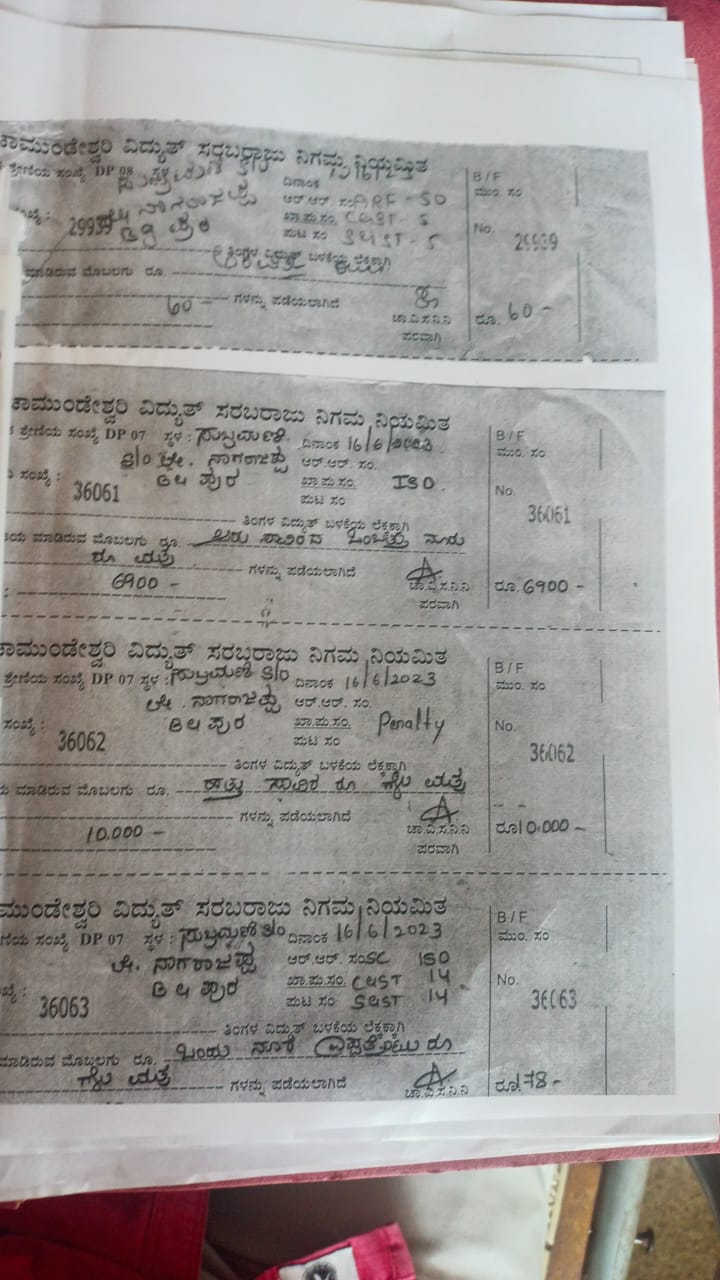 ಚಾಮುಂಡೇಶ್ವರಿ ವಿದ್ಯುತ್ ಸರಬರಾಜು ನಿಗಮ ನಿಯಮಿತ
ಶ್ರೇಣಿಯ ಸಂಖ್ಯೆ DP 08 ಸ್ಥಳ
ದಿನಾಂಕ
ಆರ್ ಆರ್. ಸಂ ARF - 50
29939
ಖಾ.ಪು.ಸಂ. CGST - 5
ಪುಟ ಸಂ SGST - 5
ತಿಂಗಳ ವಿದ್ಯುತ್ ಬಳಕೆಯ ಲೆಕ್ಕಕ್ಕಾಗಿ
ಮಾಡಿರುವ ಮೊಬಲಗು ರೂ.
60 - ಗಳನ್ನು ಪಡೆಯಲಾಗಿದೆ
ಚಾ.ವಿ.ಸ.ನಿ.ನಿ
ಪರವಾಗಿ
B / F
ಮುಂ. ಸಂ
No. 29939
ರೂ. 60 -
ಚಾಮುಂಡೇಶ್ವರಿ ವಿದ್ಯುತ್ ಸರಬರಾಜು ನಿಗಮ ನಿಯಮಿತ
ಶ್ರೇಣಿಯ ಸಂಖ್ಯೆ DP 07 ಸ್ಥಳ : ಸುಬ್ರಮಣಿ ದಿನಾಂಕ 16/6/2023
S/o ಲೇ. ನಾಗರಾಜಪ್ಪ ಆರ್.ಆರ್. ಸಂ.
ಸಂಖ್ಯೆ : 36061 ಖಾ.ಪು.ಸಂ. ISD.
ಪುಟ ಸಂ
ತಿಂಗಳ ವಿದ್ಯುತ್ ಬಳಕೆಯ ಲೆಕ್ಕಕ್ಕಾಗಿ
ಮಾಡಿರುವ ಮೊಬಲಗು ರೂ. ಆರು ಸಾವಿರದ ಒಂಬತ್ತು ನೂರು
ರೂ ಮಾತ್ರ ಗಳನ್ನು ಪಡೆಯಲಾಗಿದೆ
6900 - ಚಾ.ವಿ.ಸ.ನಿ.ನಿ
ಪರವಾಗಿ
B / F
ಮುಂ. ಸಂ
No.
36061
ರೂ. 6900 -
ಚಾಮುಂಡೇಶ್ವರಿ ವಿದ್ಯುತ್ ಸರಬರಾಜು ನಿಗಮ ನಿಯಮಿತ
ಶ್ರೇಣಿಯ ಸಂಖ್ಯೆ DP 07 ಸ್ಥಳ : ಸುಬ್ರಮಣಿ S/o ದಿನಾಂಕ 16/6/2023
ಲೇ. ನಾಗರಾಜಪ್ಪ ಆರ್.ಆರ್. ಸಂ.
ಸಂಖ್ಯೆ : 36062 ಖಾ.ಪು.ಸಂ. Penalty
ಪುಟ ಸಂ
ತಿಂಗಳ ವಿದ್ಯುತ್ ಬಳಕೆಯ ಲೆಕ್ಕಕ್ಕಾಗಿ
ಮಾಡಿರುವ ಮೊಬಲಗು ರೂ. ಹತ್ತು ಸಾವಿರ ರೂ ಗಳು ಮಾತ್ರ
ಗಳನ್ನು ಪಡೆಯಲಾಗಿದೆ
10.000 - ಚಾ.ವಿ.ಸ.ನಿ.ನಿ
ಪರವಾಗಿ
B / F
ಮುಂ. ಸಂ
No.
36062
ರೂ 10.000 -
ಚಾಮುಂಡೇಶ್ವರಿ ವಿದ್ಯುತ್ ಸರಬರಾಜು ನಿಗಮ ನಿಯಮಿತ
ಶ್ರೇಣಿಯ ಸಂಖ್ಯೆ DP 07 ಸ್ಥಳ : ಸುಬ್ರಮಣಿ S/o ದಿನಾಂಕ 16/6/2023
ಲೇ. ನಾಗರಾಜಪ್ಪ ಆರ್.ಆರ್. ಸಂ. SC 150
ಖಾ.ಪು.ಸಂ. CGST 14
36063 ಪುಟ ಸಂ SGST 14
ತಿಂಗಳ ವಿದ್ಯುತ್ ಬಳಕೆಯ ಲೆಕ್ಕಕ್ಕಾಗಿ
ಮಾಡಿರುವ ಮೊಬಲಗು ರೂ. ಒಂದು ನೂರ ಎಪ್ಪತ್ತೆಂಟು ರೂ
ಗಳು ಮಾತ್ರ ಗಳನ್ನು ಪಡೆಯಲಾಗಿದೆ
ಚಾ.ವಿ.ಸ.ನಿ.ನಿ
B / F
ಮುಂ. ಸಂ
No.
36063
ರೂ. 178 -